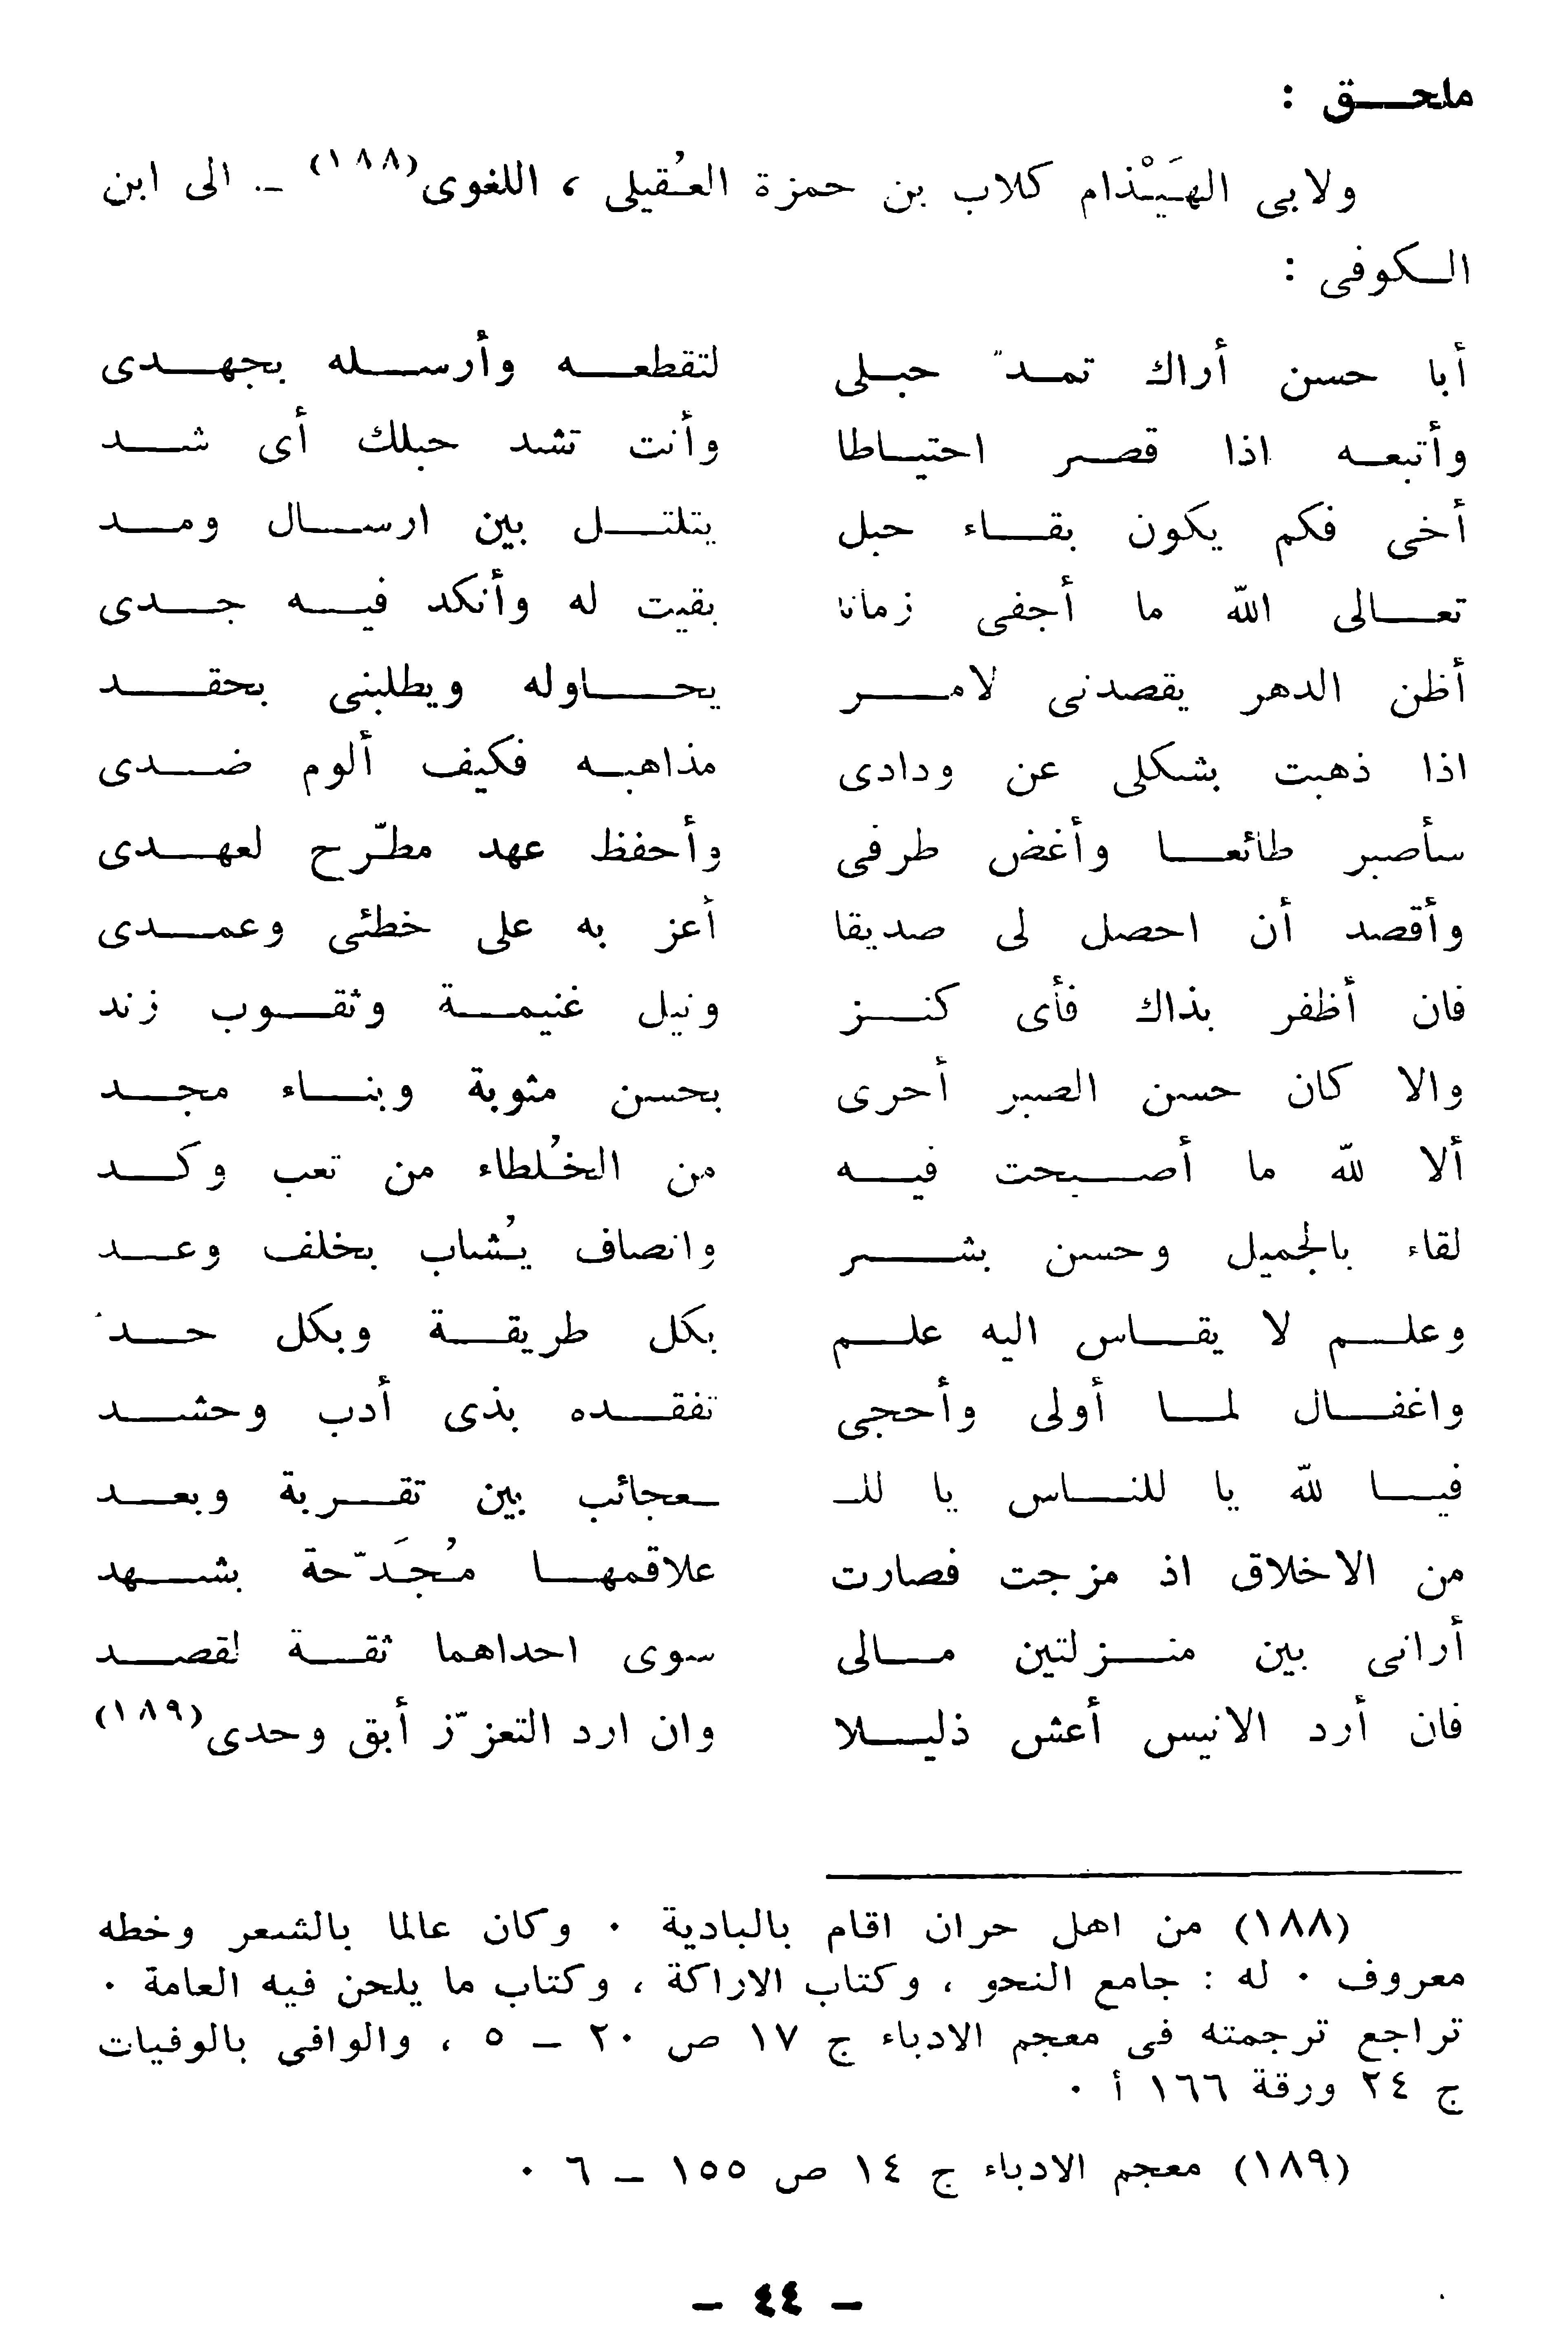 ملحق :
ولابى الهَيْذام كلاب بن حمزة العُقيلى ، اللغوى(١٨٨) ـ الى ابن
الكوفى :
أبا حسن أراك تمدّ حبلى لتقطعه وأرسله بجهدى
وأتبعه اذا قصر احتياطا وأنت تشد حبلك أى شد
أخى فكم يكون بقاء حبل يتلتل بين ارسال ومد
تعالى اللّه ما أجفى زمانا بقيت له وأنكد فيه جدى
أظن الدهر يقصدنى لامر يحاوله ويطلبنى بحقد
اذا ذهبت بشكلى عن ودادى مذاهبه فكيف ألوم ضدى
سأصبر طائعا وأغض طرفى وأحفظ عهد مطّرح لعهدى
وأقصد أن احصل لى صديقا أعز به على خطئى وعمدى
فان أظفر بذاك فأى كنز ونيل غنيمة وثقوب زند
والا كان حسن الصبر أحرى بحسن مثوبة وبناء مجد
ألا للّه ما أصبحت فيه من الخُلطاء من تعب وكد
لقاء بالجميل وحسن بشر وانصاف يُشاب بخلف وعد
وعلم لا يقاس اليه علم بكل طريقة وبكل حد
واغفال لما أولى وأحجى تفقده بذى أدب وحشد
فيا للّه يا للناس يا للـ ـعجائب بين تقربة وبعد
من الاخلاق اذ مزجت فصارت علاقمها مُجَدّحة بشهد
أرانى بين منزلتين مالى سوى احداهما ثقة لقصد
فان أرد الانيس أعش ذليلا وان ارد التعزّز أبق وحدى(١٨٩)
(١٨٨) من اهل حران اقام بالبادية ٠ وكان عالما بالشعر وخطه
معروف ٠ له : جامع النحو ، وكتاب الاراكة ، وكتاب ما يلحن فيه العامة ٠
تراجع ترجمته فى معجم الادباء ج ١٧ ص ٢٠ – ٥ ، والوافى بالوفيات
ج ٢٤ ورقة ١٦٦ أ ٠
(١٨٩) معجم الادباء ج ١٤ ص ١٥٥ – ٦ ٠
– ٤٤ –